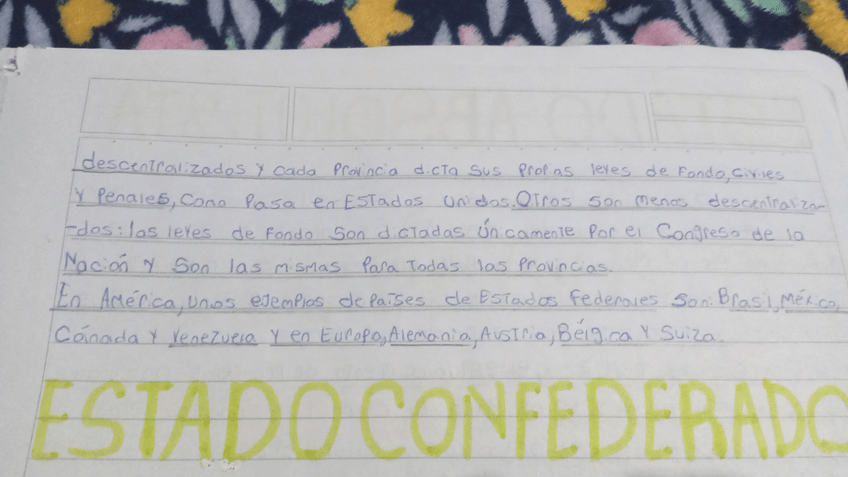 descentralizados y cada Provincia dicta sus Propias leyes de Fondo, Civiles
y Penales, Como Pasa en Estados Unidos. Otros son menos descentraliza-
-dos: las leyes de Fondo son dictadas Únicamente Por el Congreso de la
Nación y son las mismas Para Todas las Provincias.
En América, unos ejemplos de Países de Estados Federales son: Brasil, México,
Cánada y Venezuela y en Europa, Alemania, Austria, Bélgica y Suiza.
ESTADO CONFEDERADO